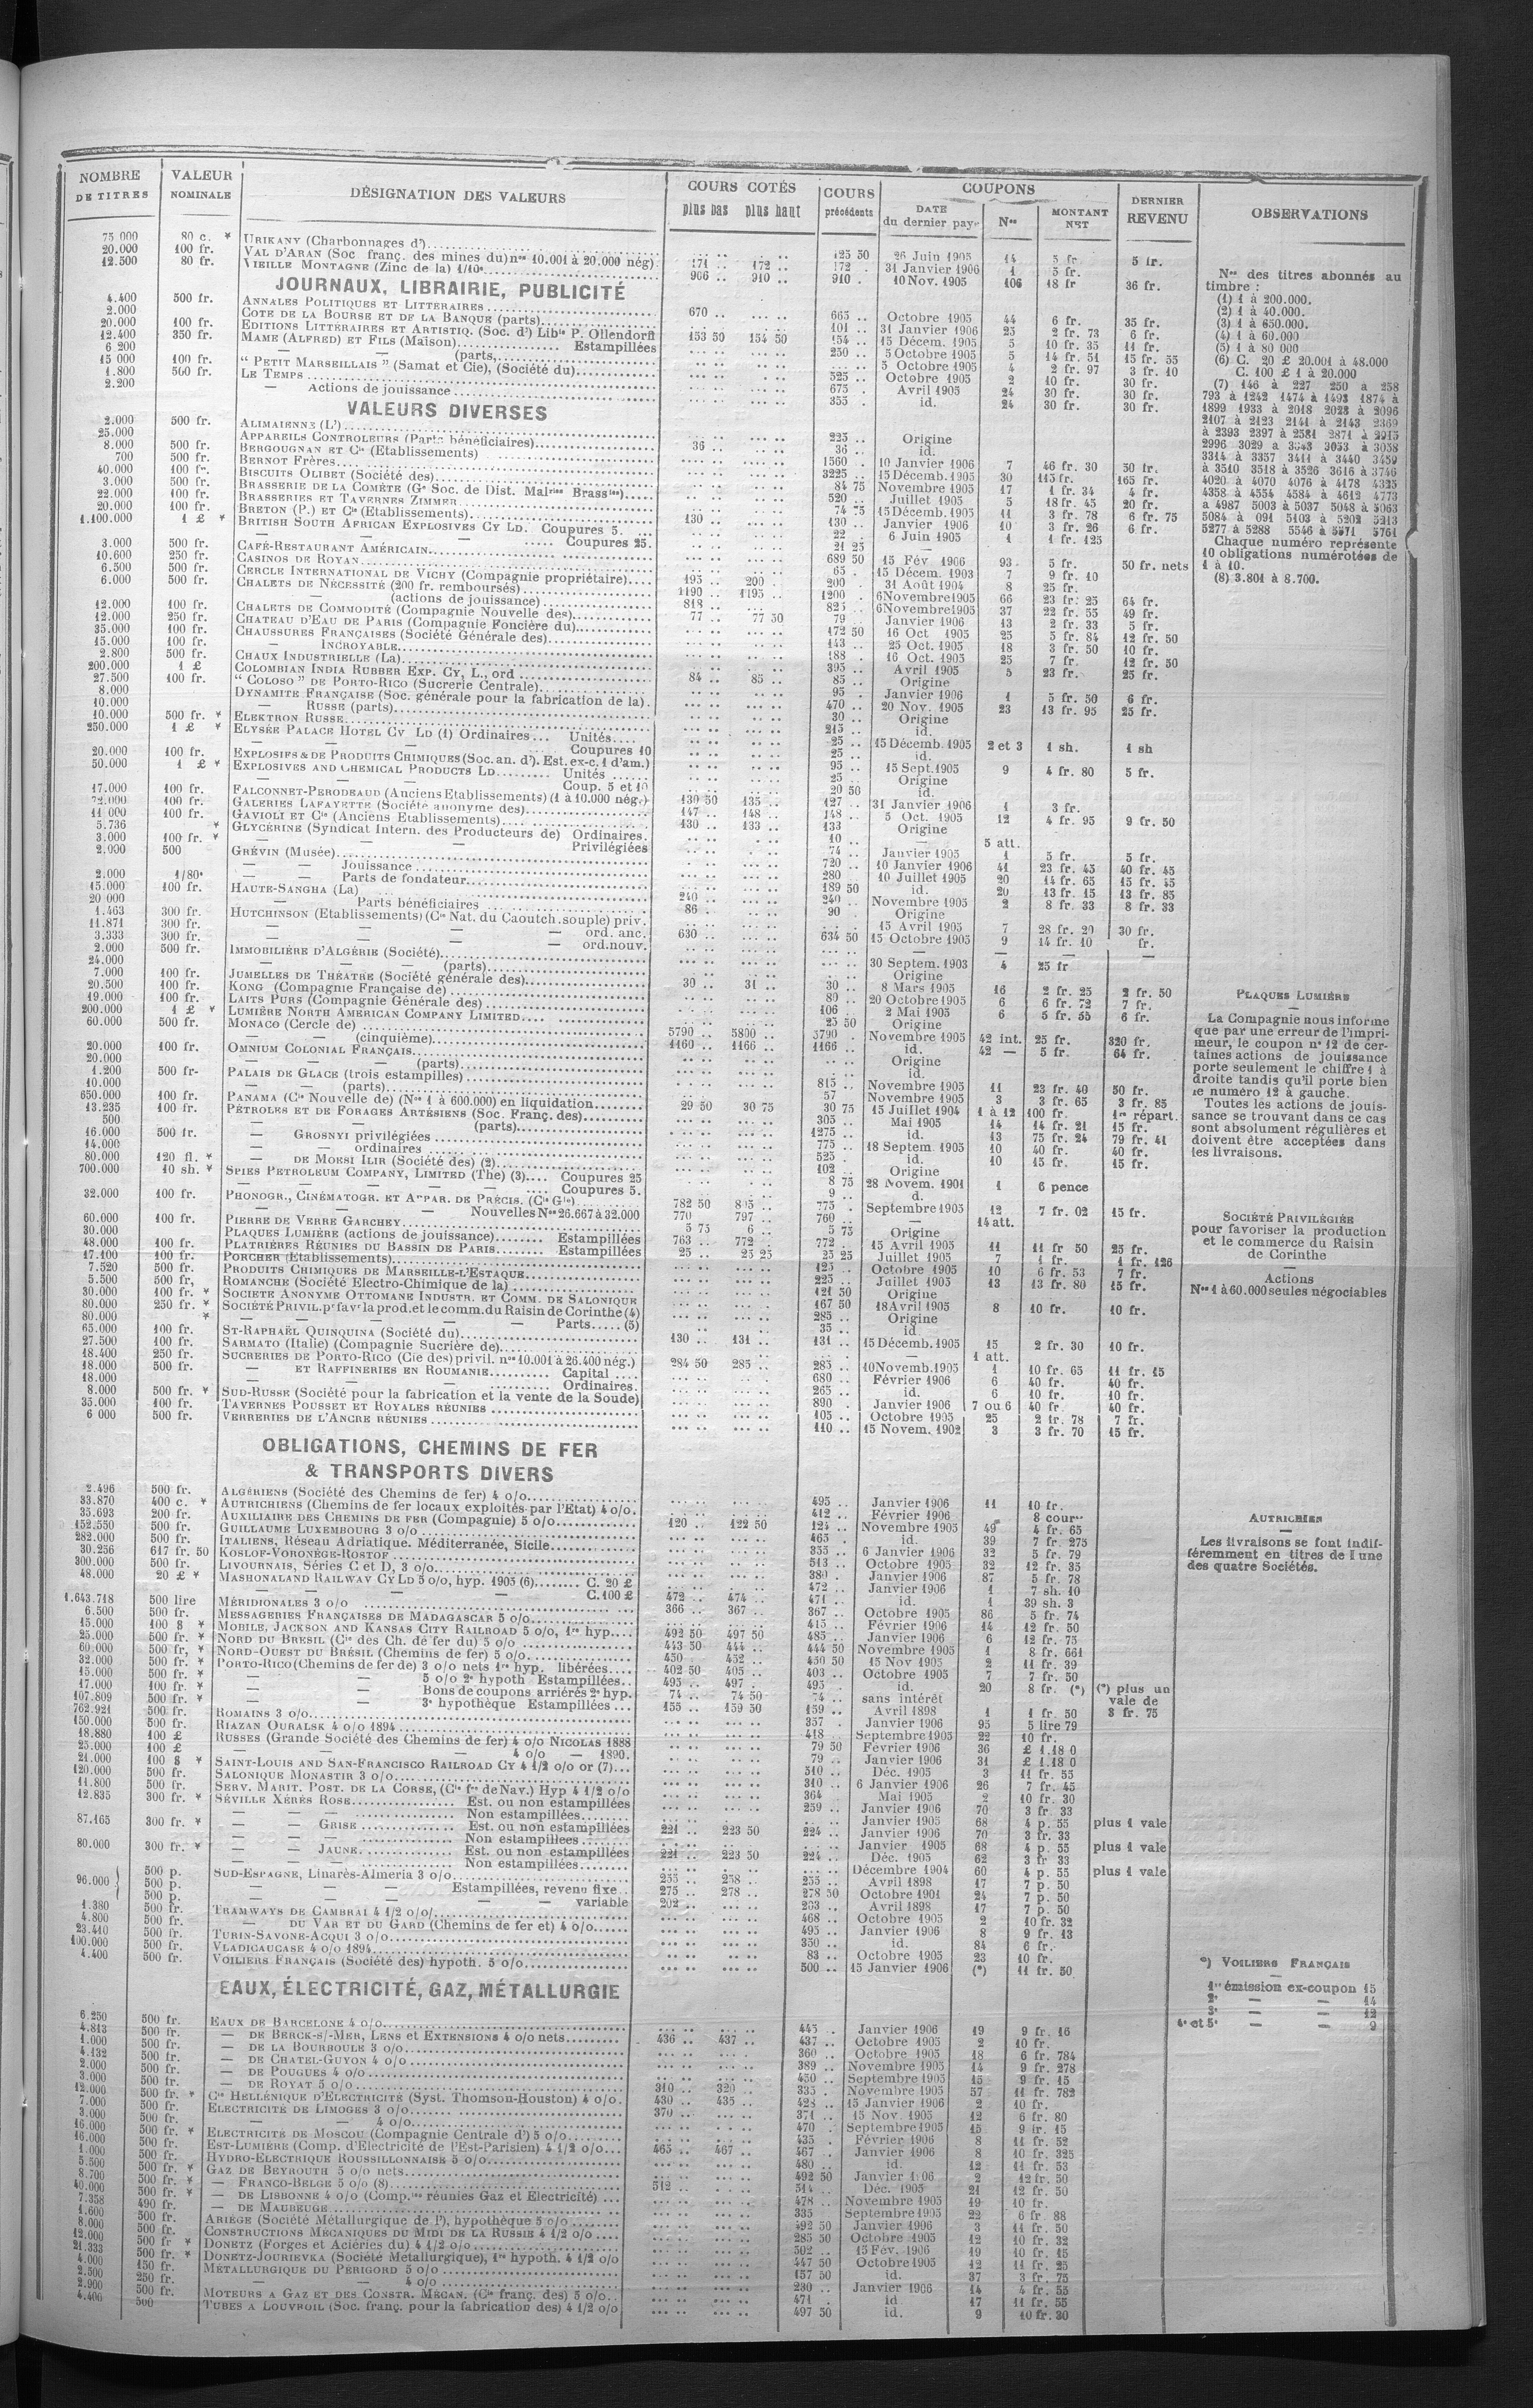 NOMBRE DE TITRES | VALEUR NOMINALE | DÉSIGNATION DES VALEURS | COURS COTÉS plus bas plus haut | COURS précédents | COUPONS DATE du dernier pay. Nos MONTANT NET | DERNIER REVENU | OBSERVATIONS
75 000 80 c. * URIKANY (Charbonnages d') 125 50 26 Juin 1905 14 5 fr. 5 fr.
20.000 100 fr. VAL D'ARAN (Soc franç. des mines du) nos 10.001 à 20.000 nég). 171 .. 172 .. 172 . 31 Janvier 1906 1 5 fr.
12.500 80 fr. VIEILLE MONTAGNE (Zinc de la) 1/10e 906 .. 910 .. 910 . 10 Nov. 1905 106 18 fr 36 fr.
JOURNAUX, LIBRAIRIE, PUBLICITÉ
4.400 500 fr. ANNALES POLITIQUES ET LITTERAIRES 670 .. 665 .. Octobre 1905 44 6 fr. 35 fr.
2.000 COTE DE LA BOURSE ET DE LA BANQUE (parts) 101 .. 31 Janvier 1906 25 2 fr. 73 6 fr.
20.000 100 fr. EDITIONS LITTÉRAIRES ET ARTISTIQ. (Soc. d') Libie P. Ollendorff 153 50 154 50 154 .. 15 Décem. 1905 5 10 fr. 35 11 fr.
12.400 350 fr. MAME (ALFRED) ET FILS (Maison) Estampillées 250 .. 5 Octobre 1905 5 14 fr. 51 15 fr. 55
6 200 — — (parts) 5 Octobre 1905 4 2 fr. 97 3 fr. 10
15 000 100 fr. “ PETIT MARSEILLAIS ” (Samat et Cie), (Société du) 525 .. Octobre 1905 2 10 fr. 30 fr.
1.800 500 fr. LE TEMPS 675 . Avril 1905 24 30 fr. 30 fr.
2.200 — Actions de jouissance 355 . id. 24 30 fr. 30 fr.
VALEURS DIVERSES
2.000 500 fr. ALIMAIENNE (L') 225 .. Origine
25.000 APPAREILS CONTROLEURS (Parts bénéficiaires) 36 .. 36 .. id.
8.000 500 fr. BERGOUGNAN ET Cie (Etablissements) 1560 . 10 Janvier 1906 7 46 fr. 30 50 fr.
700 500 fr. BERNOT Frères 3225 .. 15 Décemb. 1905 30 115 fr. 165 fr.
40.000 100 fr. BISCUITS OLIBET (Société des) 84 75 Novembre 1905 17 1 fr. 34 4 fr.
3.000 500 fr. BRASSERIE DE LA COMÈTE (Ge Soc. de Dist. Malries Brassies) 520 .. Juillet 1905 5 18 fr. 45 20 fr.
22.000 100 fr. BRASSERIES ET TAVERNES ZIMMER 74 75 15 Décemb. 1905 11 3 fr. 78 6 fr. 75
20.000 100 fr. BRETON (P.) ET Cie (Etablissements) 130 .. 130 .. Janvier 1906 10 3 fr. 26 6 fr.
1.100.000 1 £ * BRITISH SOUTH AFRICAN EXPLOSIVES CY LD. Coupures 5. 22 .. 6 Juin 1905 1 1 fr. 125
— — Coupures 25. 21 25 —
3.000 500 fr. CAFÉ-RESTAURANT AMÉRICAIN 689 50 15 Fév 1906 93 5 fr. 50 fr. nets
10.600 250 fr. CASINOS DE ROYAN 65 . 15 Décem. 1903 7 9 fr. 10
6.500 500 fr. CERCLE INTERNATIONAL DE VICHY (Compagnie propriétaire) 195 .. 200 . 200 . 31 Août 1904 8 25 fr.
6.000 500 fr. CHALETS DE NÉCESSITÉ (200 fr. remboursés) 1190 .. 1195 .. 1200 . 6 Novembre 1905 66 23 fr. 25 64 fr.
— (actions de jouissance) 818 .. 825 .. 6 Novembre 1905 37 22 fr. 55 49 fr.
12.000 100 fr. CHALETS DE COMMODITÉ (Compagnie Nouvelle des) 77 .. 77 50 79 .. Janvier 1906 13 2 fr. 33 5 fr.
12.000 250 fr. CHATEAU D'EAU DE PARIS (Compagnie Foncière du) 172 50 16 Oct 1905 25 5 fr. 84 12 fr. 50
35.000 100 fr. CHAUSSURES FRANÇAISES (Société Générale des) 143 .. 25 Oct. 1905 18 3 fr. 50 10 fr.
15.000 100 fr. — INCROYABLE 188 . 16 Oct. 1905 25 7 fr. 12 fr. 50
2.800 500 fr. CHAUX INDUSTRIELLE (La) 395 .. Avril 1905 5 23 fr. 25 fr.
200.000 1 £ COLOMBIAN INDIA RUBBER EXP. CY, L., ord 84 .. 85 .. 85 .. Origine
27.500 100 fr. “ COLOSO ” DE PORTO-RICO (Sucrerie Centrale) 95 . Janvier 1906 1 5 fr. 50 6 fr.
8.000 DYNAMITE FRANÇAISE (Soc. générale pour la fabrication de la) 470 .. 20 Nov. 1905 23 13 fr. 95 25 fr.
10.000 — RUSSE (parts) 30 .. Origine
10.000 500 fr. * ELEKTRON RUSSE 215 .. id.
250.000 1 £ * ELYSÉE PALACE HOTEL CY LD (1) Ordinaires Unités 25 .. 15 Décemb. 1905 2 et 3 1 sh. 1 sh
— — Coupures 10 25 .. id.
20.000 100 fr. EXPLOSIFS & DE PRODUITS CHIMIQUES (Soc. an. d'). Est. ex-c. 1 d'am.) 95 .. 15 Sept. 1905 9 4 fr. 80 5 fr.
50.000 1 £ * EXPLOSIVES AND CHEMICAL PRODUCTS LD Unités 25 Origine
— — Coup. 5 et 10 20 50 id.
17.000 100 fr. FALCONNET-PERODEAUD (Anciens Etablissements) (1 à 10.000 nég.) 130 50 135 .. 127 .. 31 Janvier 1906 1 3 fr.
72.000 100 fr. GALERIES LAFAYETTE (Société anonyme des) 147 .. 148 .. 148 .. 5 Oct. 1905 12 4 fr. 95 9 fr. 50
11 000 100 fr. GAVIOLI ET Cie (Anciens Etablissements) 130 .. 133 .. 133 Origine
5.736 * GLYCÉRINE (Syndicat Intern. des Producteurs de) Ordinaires. 10 .. — 5 att.
3.000 100 fr. * — — Privilégiées 74 .. Janvier 1905 1 5 fr. 5 fr.
2.000 500 GRÉVIN (Musée) 720 .. 10 Janvier 1906 41 23 fr. 45 40 fr. 45
— — Jouissance 280 10 Juillet 1905 20 14 fr. 65 15 fr. 45
2.000 1/80e — — Parts de fondateur 189 50 id. 20 13 fr. 15 13 fr. 85
15.000 100 fr. HAUTE-SANGHA (La) 240 .. 240 .. Novembre 1905 2 8 fr. 33 8 fr. 33
20 000 — Parts bénéficiaires 86 . 90 . Origine
1.463 300 fr. HUTCHINSON (Etablissements) (Cie Nat. du Caoutch. souple) priv. 15 Avril 1905 7 28 fr. 20 30 fr.
11.871 300 fr. — — — ord. anc. 630 .. 634 50 15 Octobre 1905 9 14 fr. 10 fr.
3.333 300 fr. — — — ord. nouv.
2.000 500 fr. IMMOBILIÈRE D'ALGÉRIE (Société) 30 Septem. 1903 4 25 fr
24.000 — — (parts) Origine
7.000 100 fr. JUMELLES DE THÉATRE (Société générale des) 30 .. 31 .. 30 .. 8 Mars 1905 16 2 fr. 25 2 fr. 50
20.500 100 fr. KONG (Compagnie Française de) 80 .. 20 Octobre 1905 6 6 fr. 72 7 fr.
19.000 100 fr. LAITS PURS (Compagnie Générale des) 106 . 2 Mai 1905 6 5 fr. 55 6 fr.
200.000 1 £ * LUMIÈRE NORTH AMERICAN COMPANY LIMITED 25 50 Origine
60.000 500 fr. MONACO (Cercle de) 5790 .. 5800 .. 5790 . Novembre 1905 42 int. 25 fr. 320 fr.
— — (cinquième) 1160 .. 1166 .. 1166 .. id. 42 — 5 fr. 64 fr.
20.000 100 fr. OMNIUM COLONIAL FRANÇAIS Origine
20.000 — — (parts) id.
1.200 500 fr- PALAIS DE GLACE (trois estampilles) 815 .. Novembre 1905 11 23 fr. 40 50 fr.
10.000 — — (parts) 57 Novembre 1905 3 3 fr. 65 3 fr. 85
650.000 100 fr. PANAMA (Cie Nouvelle de) (Nos 1 à 600.000) en liquidation 29 50 30 75 30 75 15 Juillet 1904 1 à 12 100 fr. 1re répart.
13.235 100 fr. PÉTROLES ET DE FORAGES ARTÉSIENS (Soc. Franç. des) 305 .. Mai 1905 14 14 fr. 21 15 fr.
500 — — (parts) 1275 .. id. 13 75 fr. 24 79 fr. 41
16.000 500 fr. — GROSNYI privilégiées 775 .. 18 Septem. 1905 10 40 fr. 40 fr.
14.000 — ordinaires 525 . id. 10 15 fr. 15 fr.
80.000 120 fl. * — DE MOESI ILIR (Société des) (2) 102 .. Origine
700.000 10 sh. * SPIES PETROLEUM COMPANY, LIMITED (The) (3) Coupures 25 8 75 28 Novem. 1901 1 6 pence
— — Coupures 5. 9 .. d.
32.000 100 fr. PHONOGR., CINÉMATOGR. ET APPAR. DE PRÉCIS. (Cie Gle) 782 50 775 . Septembre 1905 12 7 fr. 02 15 fr.
— — Nouvelles Nos 26.667 à 32.000 770 797 .. 760 .. — 14 att.
60.000 100 fr. PIERRE DE VERRE GARCHEY 5 75 6 .. 5 75 Origine
30.000 PLAQUES LUMIÈRE (actions de jouissance) Estampillées 763 .. 772 .. 772 .. 15 Avril 1905 11 11 fr 50 25 fr.
48.000 100 fr. PLATRIÈRES RÉUNIES DU BASSIN DE PARIS Estampillées 25 .. 25 25 25 25 Juillet 1905 7 1 fr. 1 fr. 126
17.100 100 fr. PORCHER (Etablissements) 125 . Octobre 1905 10 6 fr. 53 7 fr.
7.520 500 fr. PRODUITS CHIMIQUES DE MARSEILLE-L'ESTAQUE 225 .. Juillet 1905 13 13 fr. 80 15 fr.
5.500 500 fr, ROMANCHE (Société Electro-Chimique de la) 121 50 Origine
30.000 100 fr. * SOCIETE ANONYME OTTOMANE INDUSTR. ET COMM. DE SALONIQUE 167 50 18 Avril 1905 8 10 fr. 10 fr.
80.000 250 fr. * SOCIÉTÉ PRIVIL. pr favr la prod. et le comm. du Raisin de Corinthe (4) 285 .. Origine
80.000 * — — Parts (5) 35 .. id.
65.000 100 fr. ST-RAPHAËL QUINQUINA (Société du) 130 .. 131 .. 131 .. 15 Décemb. 1905 15 2 fr. 30 10 fr.
27.500 100 fr. SARMATO (Italie) (Compagnie Sucrière de) — 1 att.
18.400 250 fr. SUCRERIES DE PORTO-RICO (Cie des) privil. nos 10.001 à 26.400 nég.) 284 50 285 .. 285 .. 10 Novemb. 1905 1 10 fr. 65 11 fr. 15
18.000 500 fr. — ET RAFFINERIES EN ROUMANIE Capital 680 .. Février 1906 6 40 fr. 40 fr.
18.000 — — Ordinaires. 265 .. id. 6 10 fr. 10 fr.
8.000 500 fr. * SUD-RUSSE (Société pour la fabrication et la vente de la Soude) 890 . Janvier 1906 7 ou 6 40 fr. 40 fr.
35.000 100 fr. TAVERNES POUSSET ET ROYALES RÉUNIES 105 .. Octobre 1905 25 2 fr. 78 7 fr.
6 000 500 fr. VERRERIES DE L'ANCRE RÉUNIES 110 .. 15 Novem. 1902 3 3 fr. 70 15 fr.
OBLIGATIONS, CHEMINS DE FER
& TRANSPORTS DIVERS
2.496 500 fr. ALGÉRIENS (Société des Chemins de fer) 4 o/o 495 .. Janvier 1906 11 10 fr.
33.870 400 c. * AUTRICHIENS (Chemins de fer locaux exploités par l'Etat) 4 o/o. 412 .. Février 1906 8 cour.
35.693 200 fr. AUXILIAIRE DES CHEMINS DE FER (Compagnie) 5 o/o 120 .. 122 50 124 .. Novembre 1905 49 4 fr. 65
152.550 500 fr. GUILLAUME LUXEMBOURG 3 o/o 465 . id. 39 7 fr. 275
282.000 500 fr. ITALIENS, Réseau Adriatique. Méditerranée, Sicile 355 .. 6 Janvier 1906 32 5 fr. 79
30.256 617 fr. 50 KOSLOF-VORONÈGE-ROSTOF 513 .. Octobre 1905 32 12 fr. 35
300.000 500 fr. LIVOURNAIS, Séries C et D, 3 o/o 380 . Janvier 1906 87 5 fr. 78
48.000 20 £ * MASHONALAND RAILWAY CY LD 5 o/o, hyp. 1905 (6) C. 20 £ 472 .. Janvier 1906 1 7 sh. 10
— — C. 100 £ 472 .. 474 .. 471 .. id. 1 39 sh. 3
1.643.718 500 lire MÉRIDIONALES 3 o/o 366 .. 367 .. 367 .. Octobre 1905 86 5 fr. 74
6.500 500 fr. MESSAGERIES FRANÇAISES DE MADAGASCAR 5 o/o 415 .. Février 1906 14 12 fr. 50
15.000 100 $ * MOBILE, JACKSON AND KANSAS CITY RAILROAD 5 o/o, 1re hyp 492 50 497 50 485 .. Janvier 1906 6 12 fr. 75
25.000 500 fr. * NORD DU BRESIL (Cie des Ch. de fer du) 5 o/o 443 50 444 .. 444 50 Novembre 1905 1 8 fr. 661
60.000 500 fr. * NORD-OUEST DU BRÉSIL (Chemins de fer) 5 o/o 450 .. 452 .. 450 50 15 Nov 1905 2 11 fr. 39
32.000 500 fr. * PORTO-RICO (Chemins de fer de) 3 o/o nets 1re hyp. libérées 402 50 405 .. 403 .. Octobre 1905 7 7 fr. 50
15.000 500 fr. * — — 5 o/o 2e hypoth Estampillées 495 .. 497 . 495 . id. 20 8 fr. (*) (*) plus un vale de 3 fr. 75
17.000 100 fr. * — — Bons de coupons arriérés 2e hyp. 74 .. 74 50 74 .. sans intérêt
107.809 500 fr. * — — 3e hypothèque Estampillées 155 .. 159 50 159 .. Avril 1898 1 1 fr. 50
762.921 500 fr. ROMAINS 3 o/o 357 . Janvier 1906 95 5 lire 79
150.000 500 fr. RIAZAN OURALSK 4 o/o 1894 418 .. Septembre 1905 22 10 fr.
18.880 100 £ RUSSES (Grande Société des Chemins de fer) 4 o/o NICOLAS 1888 79 50 Février 1906 36 £ 1.18 0
25.000 100 £ — — 4 o/o — 1890. 79 .. Janvier 1906 31 £ 1.18 0
21.000 100 $ * SAINT-LOUIS AND SAN-FRANCISCO RAILROAD CY 4 1/2 o/o or (7) 510 .. Déc. 1905 3 11 fr. 55
120.000 500 fr. SALONIQUE MONASTIR 3 o/o 310 .. 6 Janvier 1906 26 7 fr. 45
11.800 500 fr. SERV. MARIT. POST. DE LA CORSE, (Cie fse de Nav.) Hyp 4 1/2 o/o 364 Mai 1905 2 10 fr. 30
12.835 300 fr. * SÉVILLE XÉRÈS ROSE Est. ou non estampillées 259 .. Janvier 1906 70 3 fr. 33
— — Non estampillées Janvier 1905 68 4 p. 55 plus 1 vale
87.165 300 fr. * — — GRISE Est. ou non estampillées 221 .. 223 50 224 .. Janvier 1906 70 3 fr. 33
— — Non estampillées Janvier 1905 68 4 p. 55 plus 1 vale
80.000 300 fr. * — — JAUNE Est. ou non estampillées 221 .. 223 50 224 .. Déc. 1905 62 3 fr 33
— — Non estampillées Décembre 1904 60 4 p. 55 plus 1 vale
96.000 500 p. SUD-ESPAGNE, Linarès-Almeria 3 o/o 255 .. 258 .. 255 .. Avril 1898 17 7 p. 50
500 p. — — Estampillées, revenu fixe 275 .. 278 .. 278 50 Octobre 1901 24 7 p. 50
500 p. — — variable 202 .. 203 .. Avril 1898 17 7 p. 50
1.380 500 fr. TRAMWAYS DE CAMBRAI 4 1/2 o/o 468 .. Octobre 1905 2 10 fr. 32
4.800 500 fr. — DU VAR ET DU GARD (Chemins de fer et) 4 o/o 495 .. Janvier 1906 8 9 fr. 13
23.410 500 fr. TURIN-SAVONE-ACQUI 3 o/o 350 .. id. 84 6 fr.
100.000 500 fr. VLADICAUCASE 4 o/o 1894 83 .. Octobre 1905 23 10 fr.
4.400 500 fr. VOILIERS FRANÇAIS (Société des) hypoth. 5 o/o 500 .. 15 Janvier 1906 (*) 11 fr. 50
EAUX, ÉLECTRICITÉ, GAZ, MÉTALLURGIE
6.250 500 fr. EAUX DE BARCELONE 4 o/o 445 . Janvier 1906 19 9 fr. 16
4.813 500 fr. — DE BERCK-s/-MER, LENS et EXTENSIONS 4 o/o nets 436 .. 437 .. 437 .. Octobre 1905 2 10 fr.
1.000 500 fr. — DE LA BOURBOULE 3 o/o 360 .. Octobre 1905 18 6 fr. 784
4.132 500 fr. — DE CHATEL-GUYON 4 o/o 389 .. Novembre 1905 14 9 fr. 278
2.000 500 fr. — DE POUGUES 4 o/o 450 .. Septembre 1905 15 9 fr. 15
3.000 500 fr. — DE ROYAT 5 o/o 310 .. 320 .. 335 . Novembre 1905 57 11 fr. 782
12.000 500 fr. * Cie HELLÉNIQUE D'ELECTRICITÉ (Syst. Thomson-Houston) 4 o/o. 430 .. 435 .. 428 .. 15 Janvier 1906 2 10 fr.
7.000 500 fr. ELECTRICITÉ DE LIMOGES 3 o/o 370 .. 371 .. 15 Nov. 1905 12 6 fr. 80
3.000 500 fr. — — 4 o/o 470 . Septembre 1905 15 9 fr. 15
16.000 500 fr. * ELECTRICITÉ DE MOSCOU (Compagnie Centrale d') 5 o/o 435 . Février 1906 8 11 fr. 52
16.000 500 fr. EST-LUMIÈRE (Comp. d'Electricité de l'Est-Parisien) 4 1/2 o/o 465 .. 467 .. 467 . Janvier 1906 8 10 fr. 325
1.000 500 fr. HYDRO-ELECTRIQUE ROUSSILLONNAISE 5 o/o 480 .. id. 12 11 fr. 53
5.500 500 fr. * GAZ DE BEYROUTH 5 o/o nets 492 50 Janvier 1906 2 12 fr. 50
8.700 500 fr. * — FRANCO-BELGE 5 o/o (8) 512 .. 514 .. Déc. 1905 21 12 fr. 50
40.000 500 fr. * — DE LISBONNE 4 o/o (Comp.ies réunies Gaz et Electricité) 478 .. Novembre 1905 19 10 fr.
7.358 490 fr. — DE MAUBEUGE 335 Septembre 1905 22 6 fr. 88
1.600 500 fr. ARIÈGE (Société Métallurgique de l'), hypothèque 5 o/o 492 50 Janvier 1906 3 11 fr. 50
8.000 500 fr. CONSTRUCTIONS MÉCANIQUES DU MIDI DE LA RUSSIE 4 1/2 o/o 285 50 Octobre 1905 12 10 fr. 32
12.000 500 fr * DONETZ (Forges et Aciéries du) 4 1/2 o/o 502 .. 15 Fév. 1906 19 10 fr. 15
21.333 500 fr. * DONETZ-JOURIEVKA (Société Métallurgique), 1re hypoth. 4 1/2 o/o 447 50 Octobre 1905 12 11 fr. 25
4.000 150 fr. MÉTALLURGIQUE DU PÉRIGORD 5 o/o 157 50 id. 37 3 fr. 75
2.500 250 fr. — — 4 o/o 230 .. Janvier 1906 14 4 fr. 55
2.900 500 fr. MOTEURS A GAZ ET DES CONSTR. MÉCAN. (Cie franç. des) 5 o/o 471 . id 17 11 fr. 55
4.400 500 TUBES A LOUVROIL (Soc. franç. pour la fabrication des) 4 1/2 o/o 497 50 id. 9 10 fr. 30
Nos des titres abonnés au
timbre :
(1) 1 à 200.000.
(2) 1 à 40.000.
(3) 1 à 650.000.
(4) 1 à 60.000
(5) 1 à 80 000
(6) C. 20 £ 20.001 à 48.000
C. 100 £ 1 à 20.000
(7) 146 à 227 250 a 258
793 à 1242 1474 à 1493 1874 à
1899 1933 à 2018 2028 à 2096
2107 à 2123 2141 à 2143 2369
à 2393 2397 à 2581 2871 à 2915
2996 3029 a 3053 à 3058
3314 à 3357 3411 à 3440 3459
à 3510 3518 à 3526 3616 à 3746
4020 à 4070 4076 à 4178 4325
4358 à 4554 4584 à 4612 4773
a 4987 5003 à 5037 5048 à 5063
5084 à 091 5103 à 5202 5213
5277 à 5288 5546 à 5571 5761
Chaque numéro représente
10 obligations numérotées de
1 à 10.
(8) 3.801 à 8.700.
PLAQUES LUMIÈRE
La Compagnie nous informe
que par une erreur de l'impri-
meur, le coupon no 12 de cer-
taines actions de jouissance
porte seulement le chiffre 1 à
droite tandis qu'il porte bien
le numéro 12 à gauche.
Toutes les actions de jouis-
sance se trouvant dans ce cas
sont absolument régulières et
doivent être acceptées dans
les livraisons.
SOCIÉTÉ PRIVILÉGIÉE
pour favoriser la production
et le commerce du Raisin
de Corinthe
—
Actions
Nos 1 à 60.000 seules négociables
AUTRICHIEN
—
Les livraisons se font indif-
féremment en titres de l une
des quatre Sociétés.
*) VOILIERS FRANÇAIS
—
1re émission ex-coupon 15
2e — — 14
3e — — 12
4e et 5e — — 9